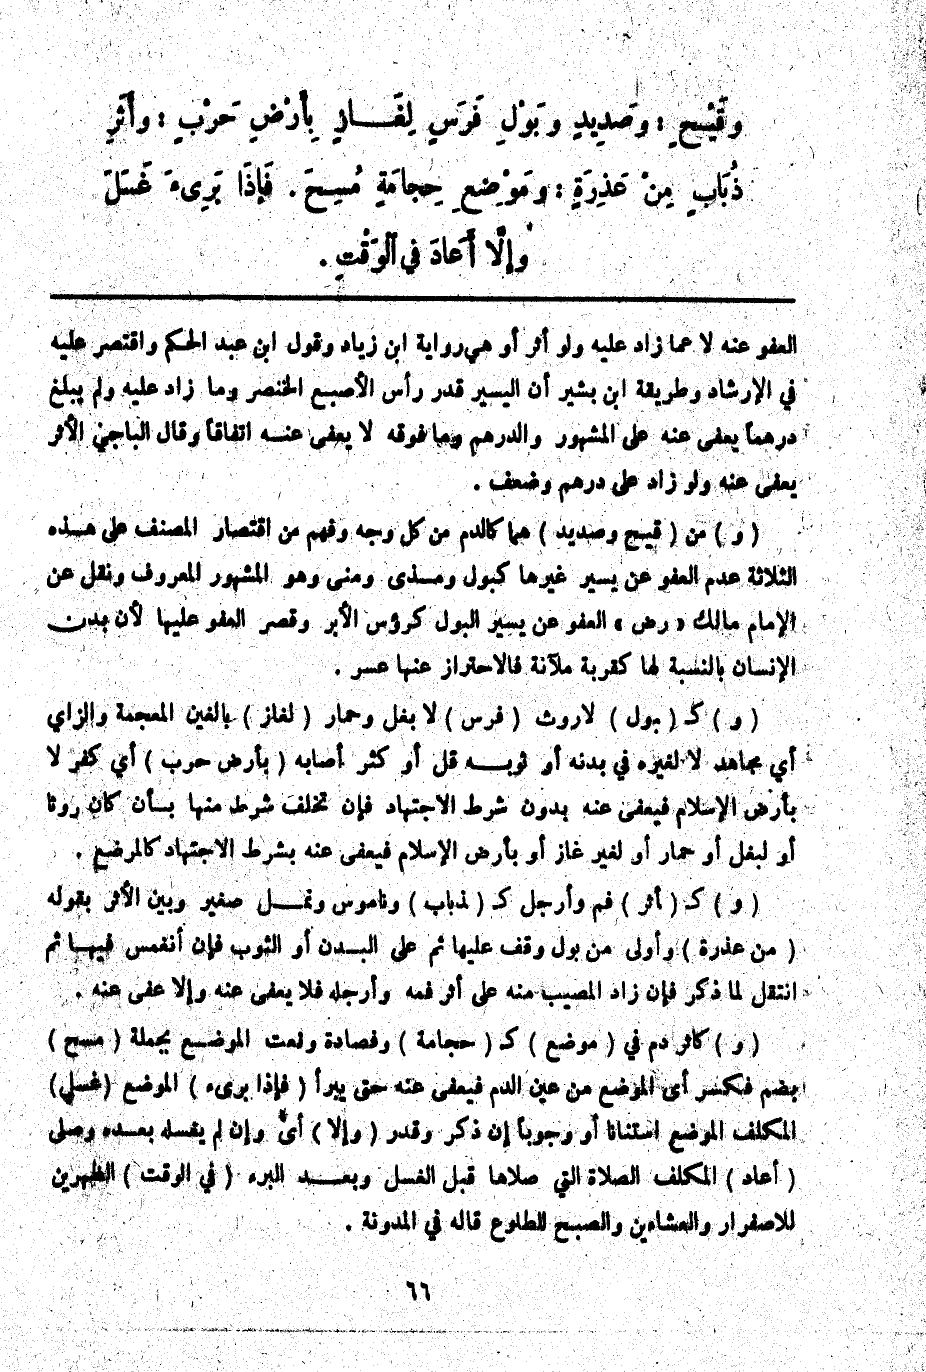 وَقَيْحٍ : وَصَدِيدٍ وَبَوْلِ فَرَسٍ لِغَــازٍ بِأَرْضِ حَرْبٍ : وأَثَرِ
ذُبَابٍ مِنْ عَذِرَةٍ : ومَوْضِعِ حِجَامَةٍ مُسِحَ . فَإِذَا بَرِىءَ غَسَلَ
وإِلَّا أَعادَ في ٱلْوَقْتِ .
العفو عنه لا عما زاد عليه ولو أثر أو هي رواية ابن زياد وقول ابن عبد الحكم واقتصر عليه
في الإرشاد وطريقة ابن بشير أن اليسير قدر رأس الأصبع الخنصر وما زاد عليه ولم يبلغ
درهماً يعفى عنه على المشهور والدرهم وما فوقه لا يعفى عنــه اتفاقاً وقال الباجي الأثر
يعفى عنه ولو زاد على درهم وضعف .
( و ) من ( قيح وصديد ) هما كالدم من كل وجه وفهم من اقتصار المصنف على هــذه
الثلاثة عدم العفو عن يسير غيرها كبول ومــذى ومنى وهو المشهور المعروف ونقل عن
الإمام مالك « رض » العفو عن يسير البول كرؤس الأبر وقصر العفو عليها لأن بدن
الإنسان بالنسبة لها كقربة ملآنة فالاحتراز عنها عسر .
( و ) كـ ( بول ) لاروث ( فرس ) لا بغل وحمار ( لغاز ) بالغين المعجمة والزاي
أي مجاهد لا لغيره في بدنه أو ثوبــه قل أو كثر أصابه ( بأرض حرب ) أي كفر لا
بأرض الإسلام فيعفى عنه بدون شرط الاجتهاد فإن تخلف شرط منها بــأن كان روثا
أو لبغل أو حمار أو لغير غاز أو بأرض الإسلام فيعفى عنه بشرط الاجتهاد كالمرضع .
( و ) كـ ( أثر ) فم وأرجل كـ ( لذباب ) وناموس ونمــل صغير وبين الأثر بقوله
( من عذرة ) وأولى من بول وقف عليها ثم على البــدن أو الثوب فإن أنغمس فيهــا ثم
انتقل لما ذكر فإن زاد المصيب منه على أثر فمه وأرجله فلا يعفى عنه وإلا عفى عنه .
( و ) كاثر دم في ( موضع ) كـ ( حجامة ) وفصادة ونعت الموضــع بجملة ( مسح )
بضم فكسر أى الموضع من عين الدم فيعفى عنه حتى يبرأ ( فإذا برىء ) الموضع (غسل)
المكلف الموضع استنانا أو وجوباً إن ذكر وقدر ( وإلا ) أى وإن لم يغسله بعــده وصلى
( أعاد ) المكلف الصلاة التي صلاها قبل الغسل وبعــد البرء ( في الوقت ) الظهرين
للاصفرار والعشاءين والصبح للطلوع قاله في المدونة .
٦٦